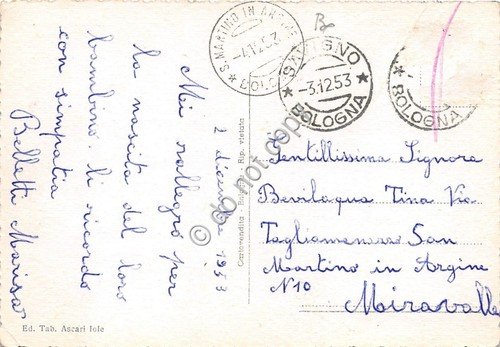 2 dicembre 1953
Mi rallegro per
la nascita del loro
bambino. li ricordo
con simpatia
Belletti Marisa
Ed. Tab. Ascari Iole
Rip. vietata
S. MARTINO IN ARGINE
-4.12.53
SAVIGNO
-3.12.53
BOLOGNA
BOLOGNA
do not copy
Gentillissima Signora
Bevilaqua Tina Via
San
Martino in Argine
N10
Miravalle